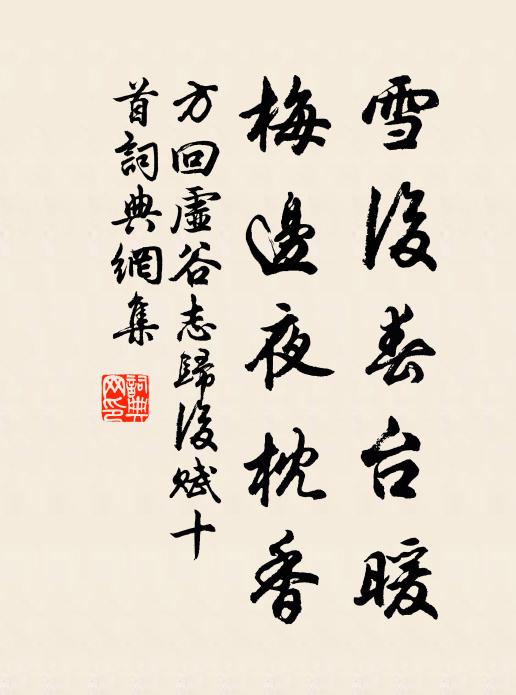 雪後春台暖
梅邊夜枕香
方回虛谷志歸後賦十
首詞典網集
詞典
网印